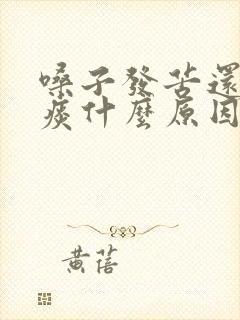 嗓子發苦還
痰什麼原因
黃蓓